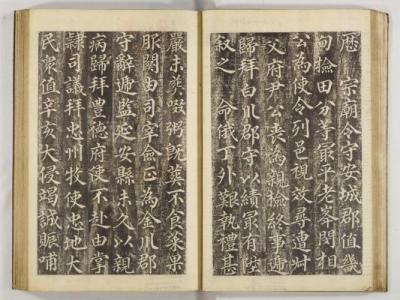 歴 宗朝令守安城郡值畿
甸撿田分等最平老峯閔相
公為使令列邑視效尋遭
父府尹公喪為親撿終事遞
歸拜白川郡守以績最有陞
叙之 命俄丁外艱執禮甚
嚴未葬啜粥旣葬不食菜果
服闋由司宰僉正為金川郡
守辭遞監延安縣未久以親
病歸拜豊德府使不赴由掌
隷司議拜忠州牧使忠地大
民衆值辛亥大侵竭誠賑哺